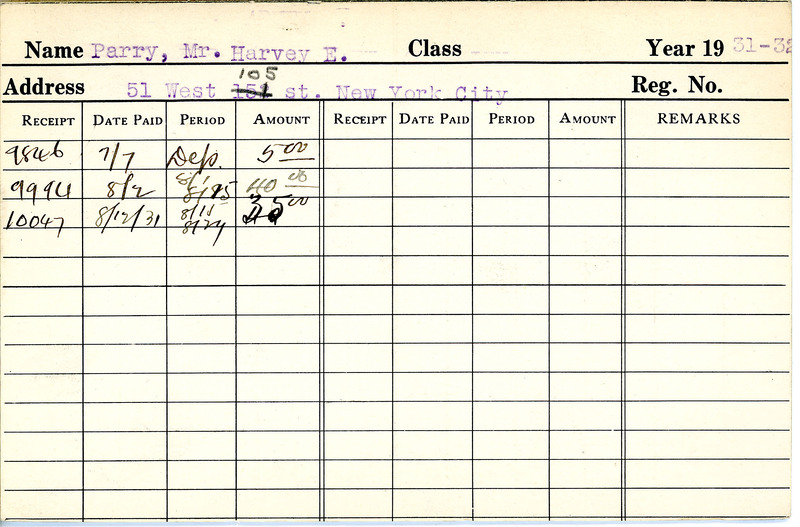 Name Parry, Mr. Harvey E. Class Year 19 31-32
105
Address 51 West 151 st. New York City Reg. No.
RECEIPT DATE PAID PERIOD AMOUNT RECEIPT DATE PAID PERIOD AMOUNT REMARKS
9846 7/7 Dep. 5 00
8/1
9994 8/2 8/15 40 00
10047 8/12/31 8/11 35 00
8/24